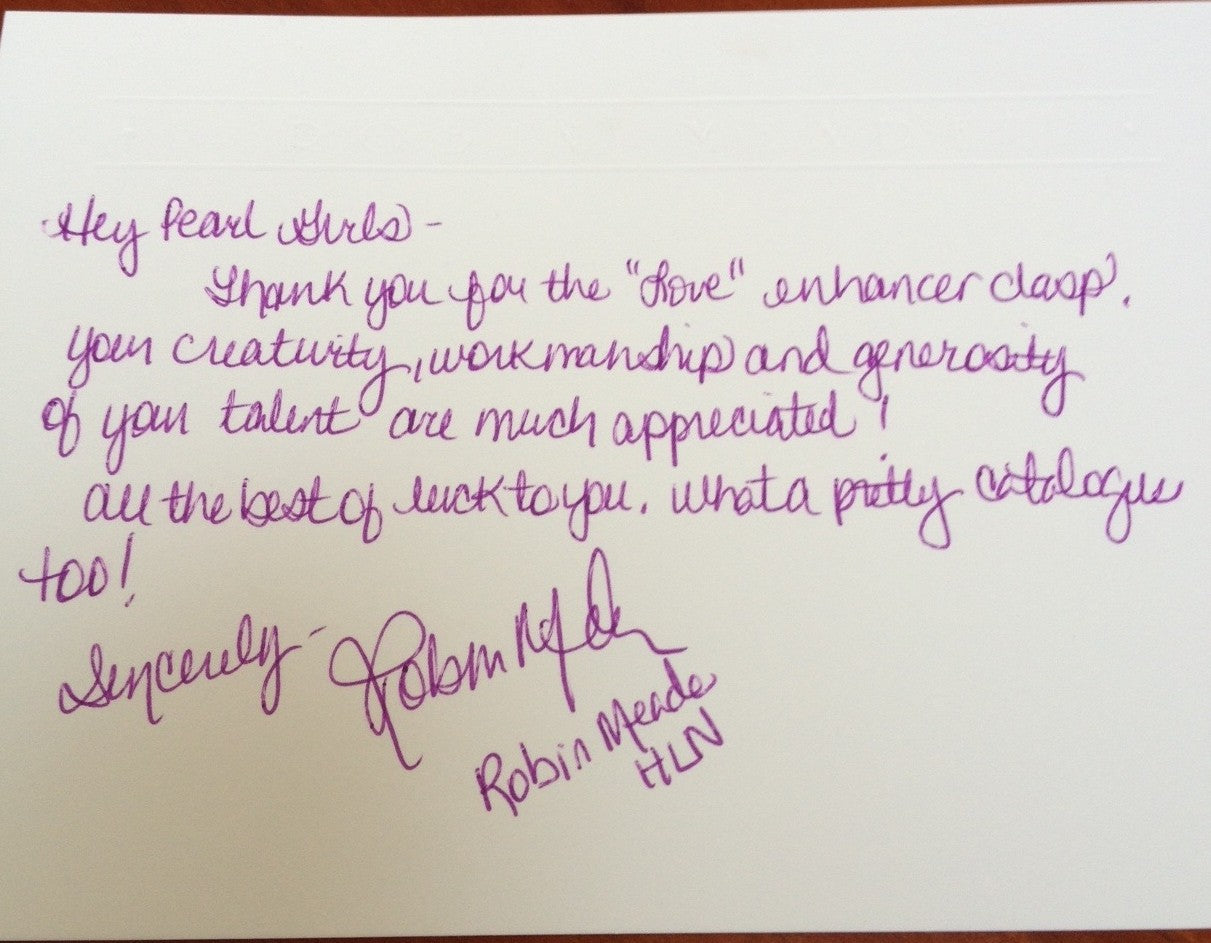 Hey Pearl Girls -
Thank you for the "Love" enhancer clasp.
Your creativity, workmanship and generosity
of your talent are much appreciated!
All the best of luck to you. What a pretty catalogue
too!
Sincerely - Robin Meade
Robin Meade
HLN